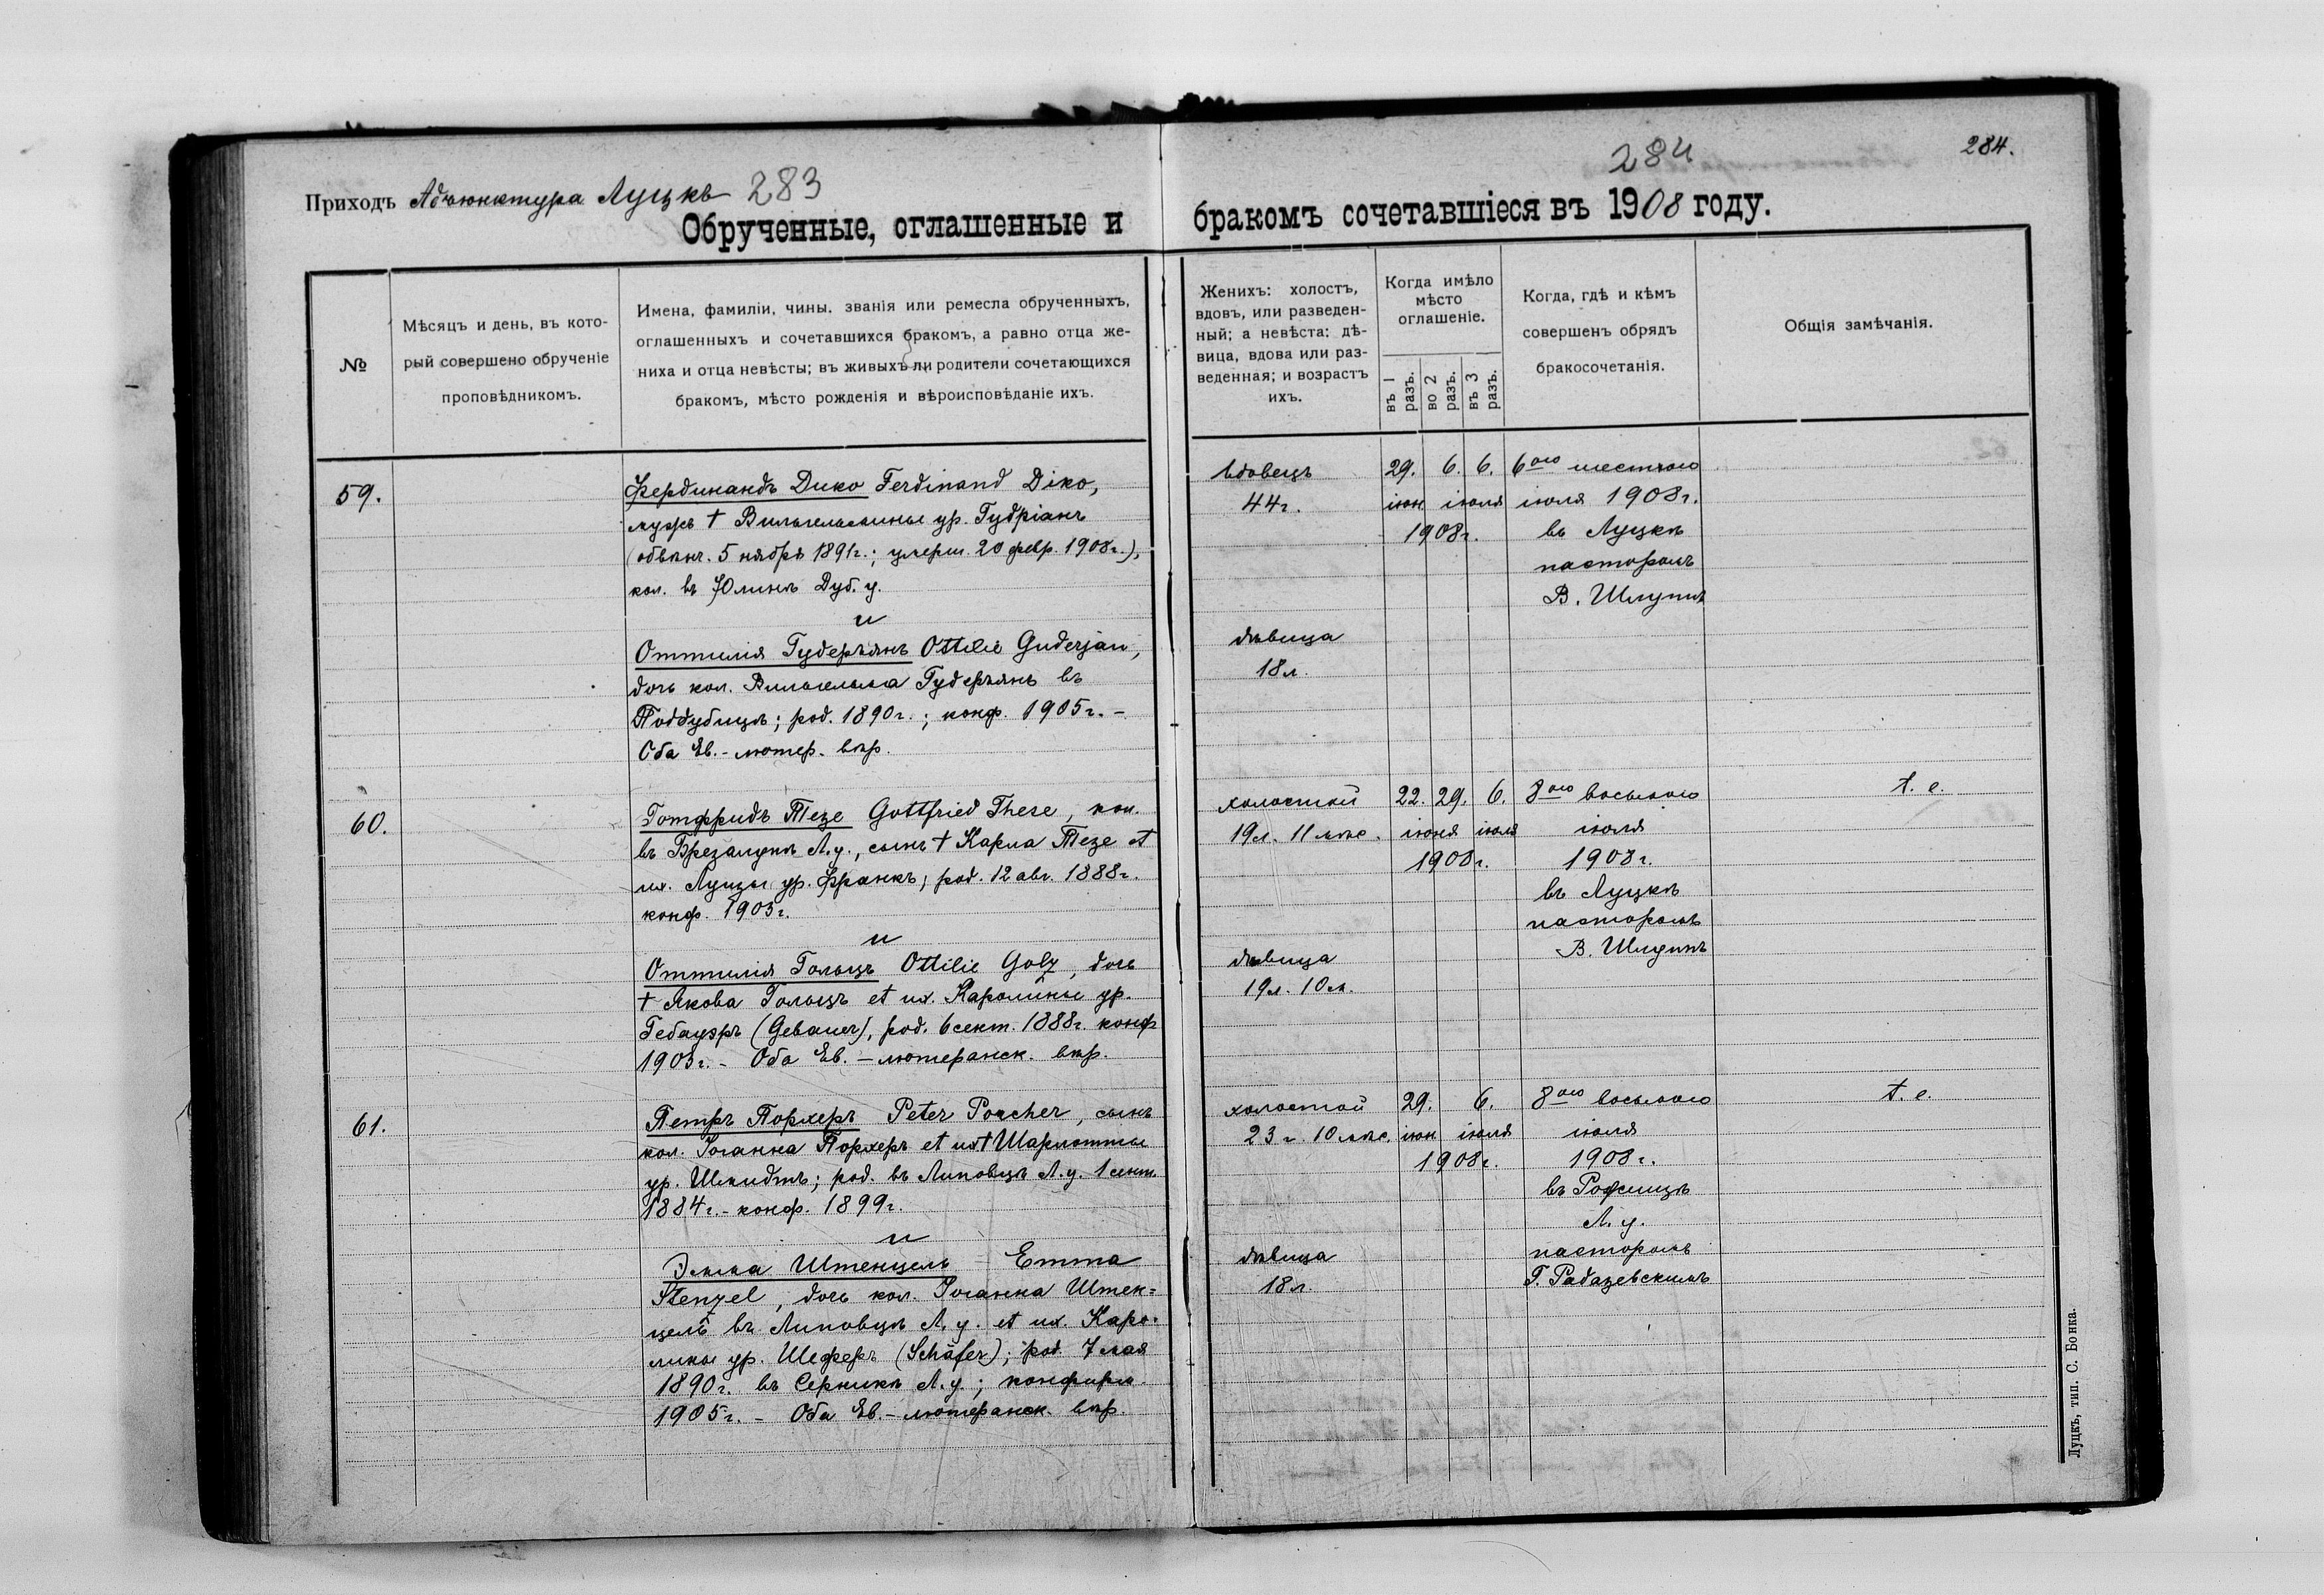 Приходъ Адъюнктура Луцкъ 283
Обрученные, оглашенные и
№
Мѣсяцъ и день, въ кото-
рый совершено обрученіе
проповѣдникомъ.
Имена, фамиліи, чины. званія или ремесла обрученныхъ,
оглашенныхъ и сочетавшихся бракомъ, а равно отца же-
ниха и отца невѣсты; въ живыхъ ли родители сочетающихся
бракомъ, мѣсто рожденія и вѣроисповѣданіе ихъ.
59.
Фердинандъ Дико Ferdinand Diko,
мужъ † Вильгельмины ур. Гудріанъ
(обвѣнч. 5 ноября 1891г.; умерш. 20 февр. 1908г.),
кол. въ Юлинѣ Дуб. у.
и
Оттилія Гудерьянъ Ottilie Guderjan,
дочь кол. Вильгельма Гудерьянъ въ
Поддубицѣ; род. 1890г.; конф. 1905г. –
Оба Ев.-лютер. вѣр.
60.
Готфридъ Тезе Gottfried These, кол.
въ Брезалукѣ Л.у., сынъ † Карла Тезе et
ux. Луизы ур. Франкъ; род. 12 авг. 1888г.
конф. 1903г.
и
Оттилія Гольцъ Ottilie Golz, дочь
† Якова Гольцъ et ux. Каролины ур.
Гебауэръ (Gebauer), род. 6 сент. 1888г. конф
1903г. – Оба Ев.–лютеранск. вѣр.
61.
Петръ Порхеръ Peter Porcher, сынъ
кол. Іоганна Порхеръ et ux † Шарлотты
ур. Шмидтъ; род. въ Липовцѣ Л.у. 1 сент.
1884г. – конф. 1899г.
и
Эмма Штенцель Emma
Stenzel, дочь кол. Іоганна Штен=
цель въ Липовцѣ Л.у. et ux. Каро-
лины ур. Шеферъ (Schäfer); род. 7 мая
1890г. въ Серникѣ Л.у.; конфирм.
1905г. – Оба Ев.–лютеранск. вѣр.
284
284.
бракомъ сочетавшіеся въ 1908 году.
Женихъ: холостъ,
вдовъ, или разведен-
ный; а невѣста: дѣ-
вица, вдова или раз-
веденная; и возрастъ
ихъ.
Когда имѣло
мѣсто
оглашеніе.
въ 1 разъ.
во 2 разъ.
въ 3 разъ.
Когда, гдѣ и кѣмъ
совершенъ обрядъ
бракосочетанія.
Общія замѣчанія.
вдовецъ 29. 6. 6. 6ого шестого
44г. іюн іюля іюля 1908г.
1908г. въ Луцкѣ
пасторомъ
В. Шлуппъ
дѣвица
18л.
холостой 22. 29. 6. 8ого восьмого t. e.
19л. 11 мѣс. іюня іюля іюля
1908г. 1908г.
въ Луцкѣ
пасторомъ
В. Шлуппъ
дѣвица
19л. 10м.
холостой 29. 6. 8ого восьмого t. e.
23 г. 10 мѣс. іюн іюля іюля
1908г. 1908г.
въ Рожищѣ
Л. у.
пасторомъ
Г. Радазевскимъ
дѣвица
18л.
Луцкъ, тип. С. Бонка.